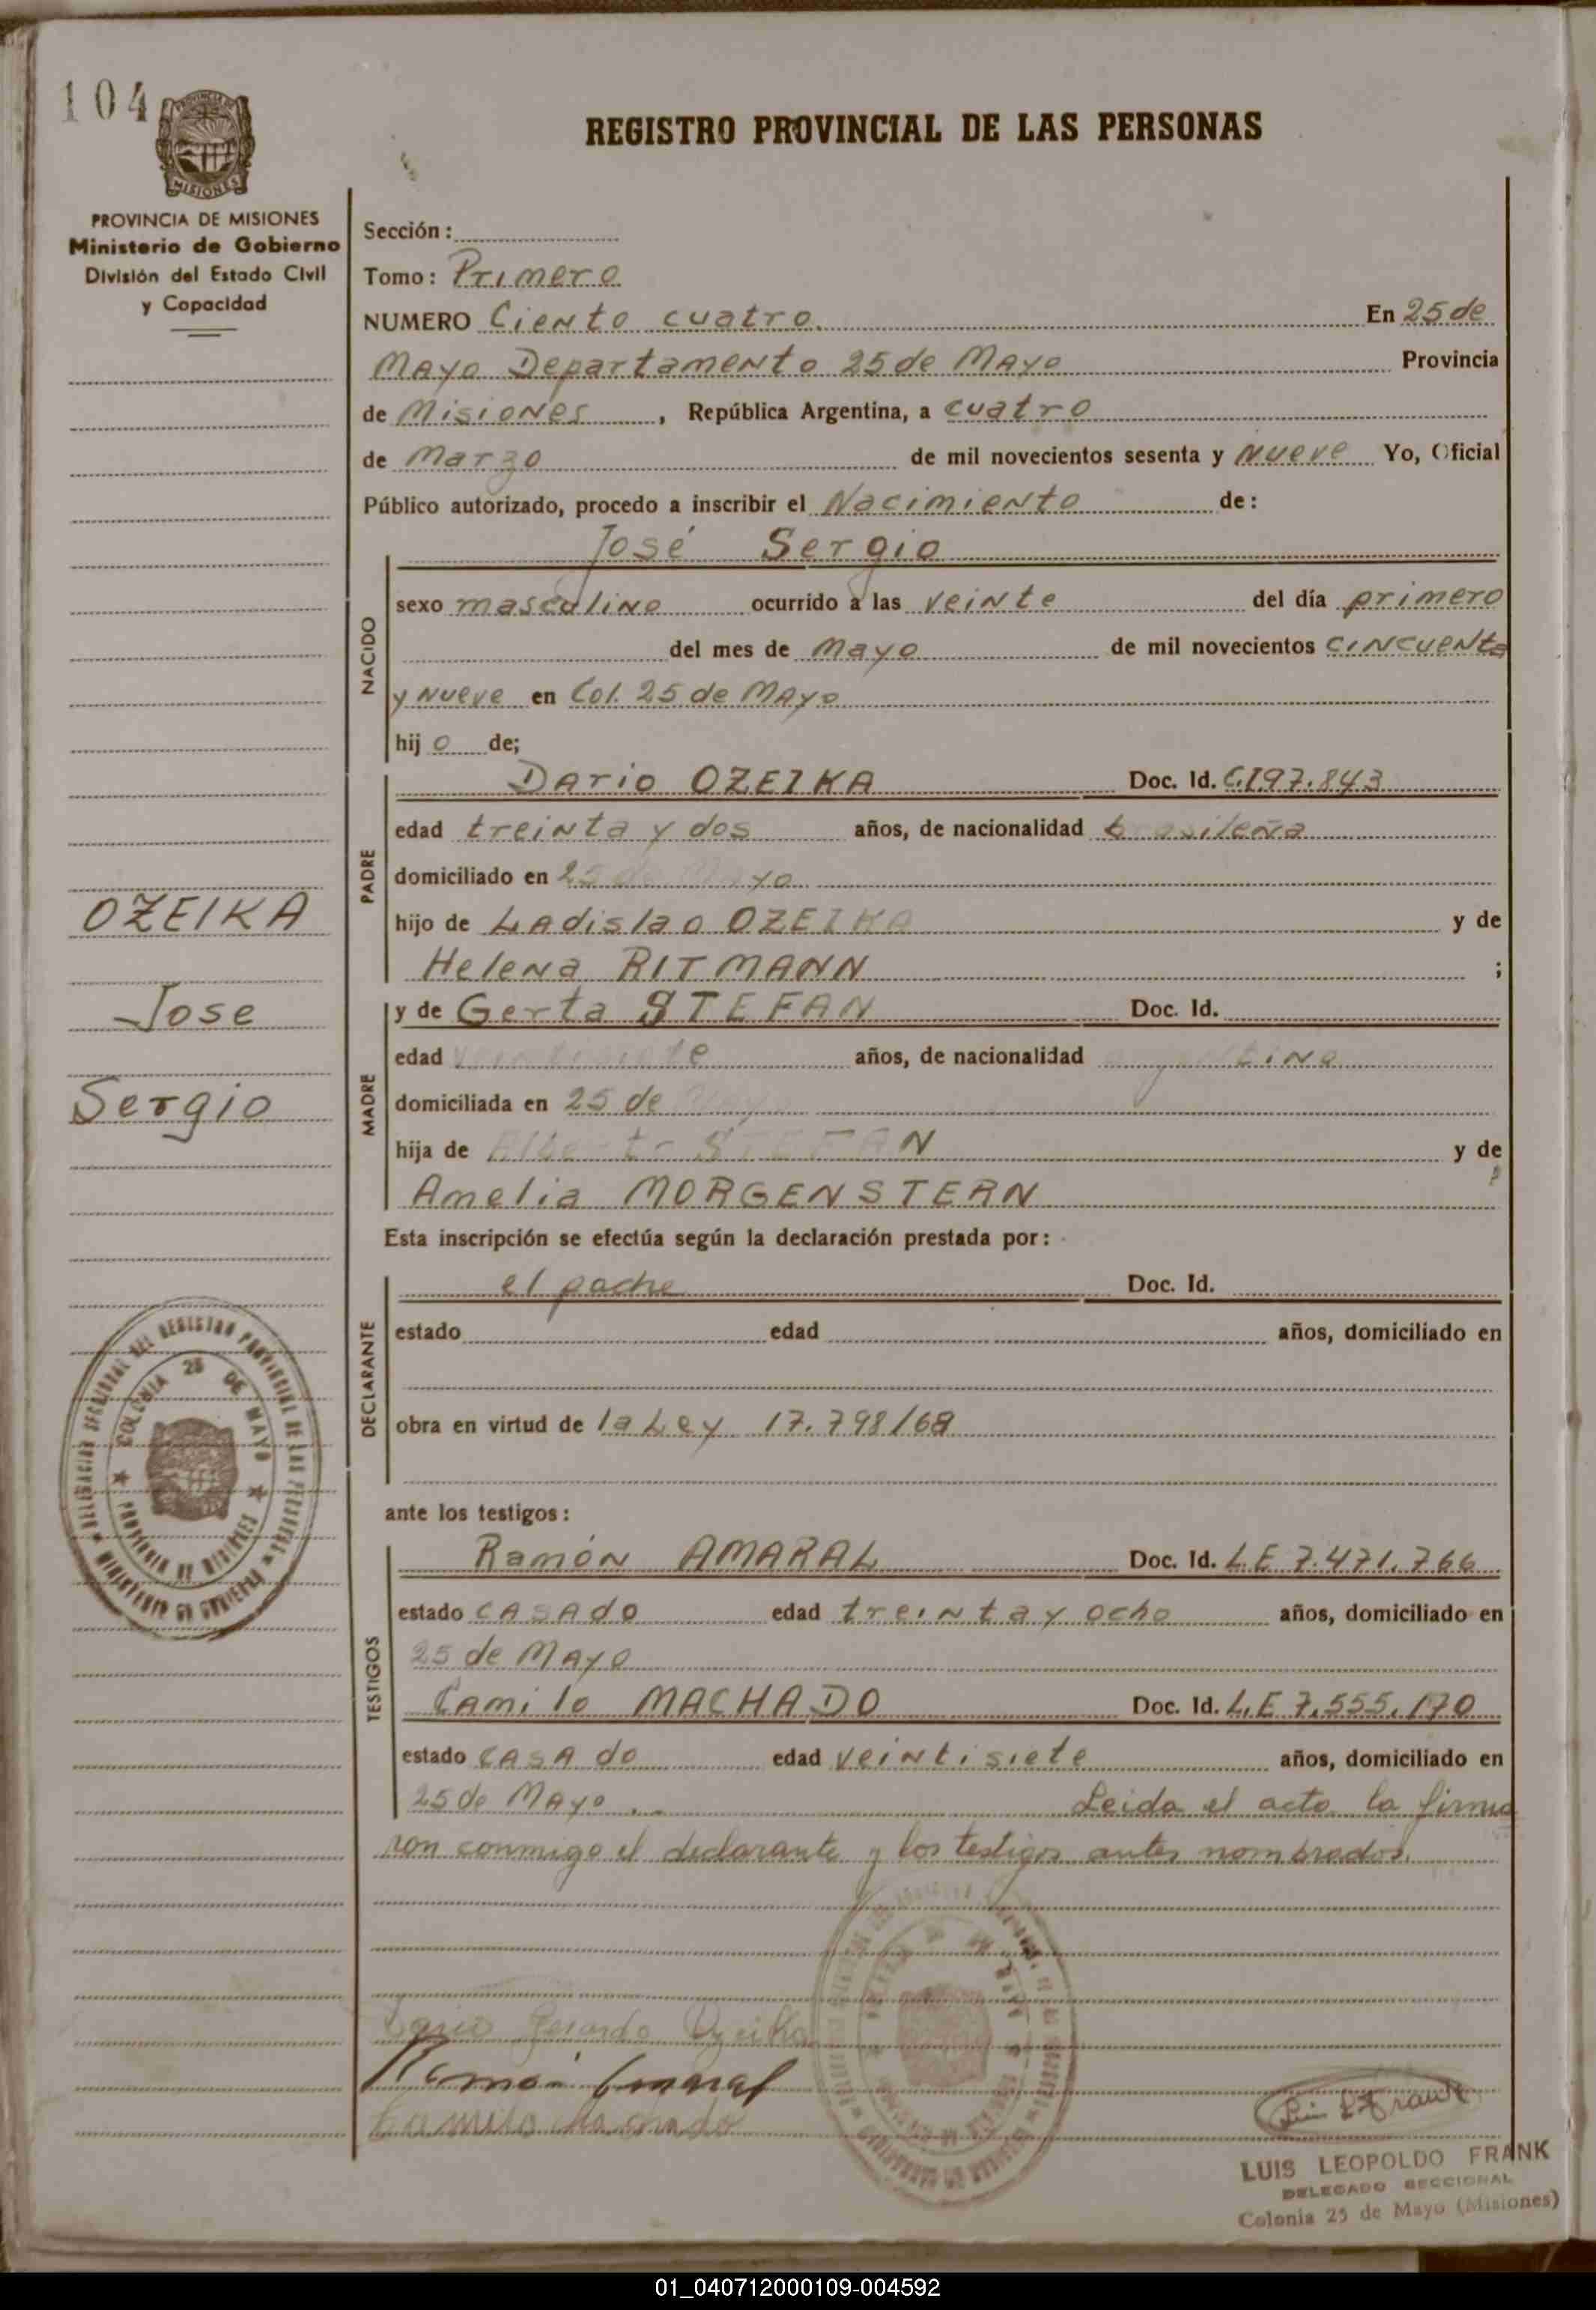 104
MISIONES
PROVINCIA DE MISIONES
Ministerio de Gobierno
División del Estado Civil
y Capacidad
REGISTRO PROVINCIAL DE LAS PERSONAS
Sección:
Tomo: Primero
NUMERO Ciento cuatro. En 25 de
Mayo Departamento 25 de Mayo Provincia
de Misiones, República Argentina, a cuatro
de Marzo de mil novecientos sesenta y Nueve Yo, Oficial
Público autorizado, procedo a inscribir el Nacimiento de:
NACIDO
José Sergio
sexo masculino ocurrido a las veinte del día primero
del mes de Mayo de mil novecientos cincuenta
y nueve en Col. 25 de Mayo
hijo de;
PADRE
Dario OZEIKA Doc. Id. C.I 97.843
edad treinta y dos años, de nacionalidad brasileña
domiciliado en 25 de Mayo
hijo de Ladislao OZEIKA y de
Helena RITMANN ;
MADRE
y de Gerta STEFAN Doc. Id.
edad veintisiete años, de nacionalidad argentina
domiciliada en 25 de Mayo
hija de STEFAN y de
Amelia MORGENSTERN
Esta inscripción se efectúa según la declaración prestada por:
DECLARANTE
el padre Doc. Id.
estado edad años, domiciliado en
obra en virtud de la Ley 17.798/68
ante los testigos:
TESTIGOS
Ramón AMARAL Doc. Id. L.E 7.471.766
estado casado edad treinta y ocho años, domiciliado en
25 de Mayo
Camilo MACHADO Doc. Id. L.E 7.555.170
estado casado edad veintisiete años, domiciliado en
25 de Mayo.. Leida el acta la firma
ron conmigo el declarante y los testigos antes nombrados.
OZEIKA
Jose
Sergio
DELEGACION SECCIONAL DEL REGISTRO PROVINCIAL DE LAS PERSONAS
MINISTERIO DE GOBIERNO
COLONIA 25 DE MAYO
PROVINCIA DE MISIONES
Dario Gerardo Ozeika
Ramón Amaral
Camilo Machado
LUIS LEOPOLDO FRANK
DELEGADO SECCIONAL
Colonia 25 de Mayo (Misiones)
01_040712000109-004592